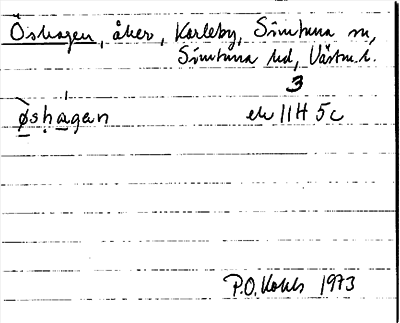 Öshagen, åker, Karleby, Simtuna sn,
Simtuna hd, Västm. l.
3
øshagan ek 11H 5c
P.O. Kohls 1973